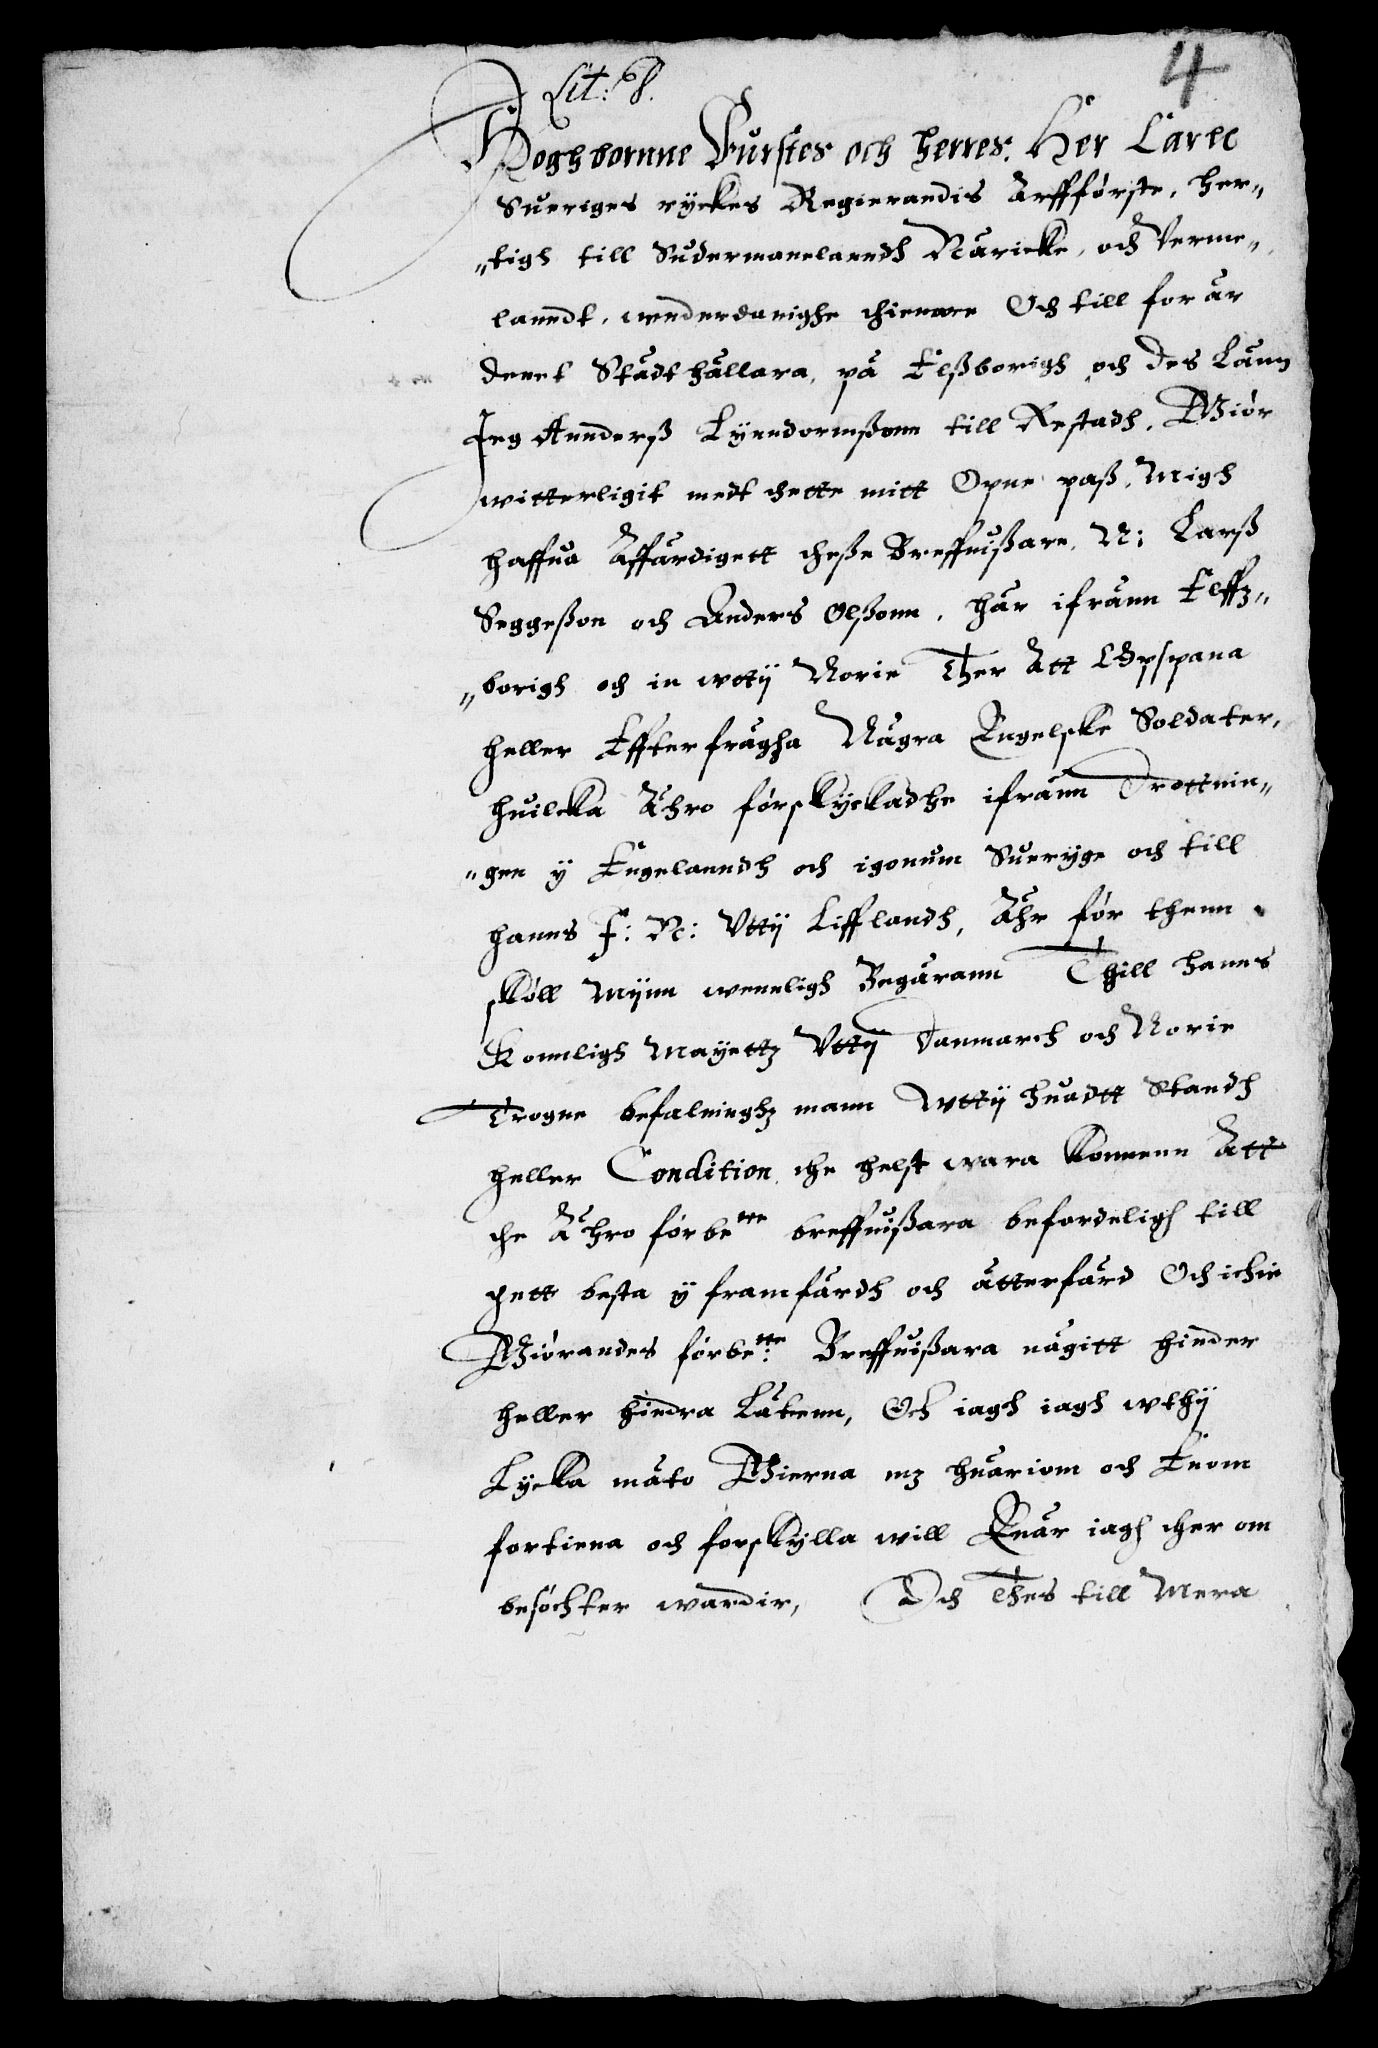 4
Lit: B.
Hoghbornne Furstes och herres. Her Carlc
Sueriges ryckes Regierandis Arffførste, her„
„tigh till Sudermannelanndh Näricke, och Verme„
lanndt, wnderdanighe thienare Och till for år
denet Stådthållara, på Elßborigh och des Länn
Jeg Annderß Lynndormßonn till Restadh, Giør
witterligit medt thette mitt Opne paß, Migh
haffua Affärdigett theße Breffuißare, N: Larß
Seggeßon och Anders Olßonn, här ifrånn Elffz„
„borigh och in wttij Norie Ther Att Vpspana
heller Effterfrågha Några Engelske Soldater,
huilcka Ähro førskyckadhe ifrånn Drottnin„
„gen ij Engelanndh och igonum Sueryge och till
hanns F: N: Vttij Lifflandh, Ähr før thenn
skøll Mijnn wenneligh Begärann Thill hanns
Konnligh Mayettz Vttij Danmarch och Norie
Trogne befalninghz mann Wttij huadtt Standh
heller Condition the helst wara konnenn Att
the Ähro førbe:tte breffuißara befordeligh till
thett besta ij framfärdh och åtterfärd Och ickie
Giørandes førbe:tte Breffuißara någitt hinder
heller hindra Låtenn, Och iagh iagh wthij
Lycka måto Gierna mz huariom och Enom
fortiena och forskylla will Enär iagh ther om
besøchter wardir, Och Thes till Mera